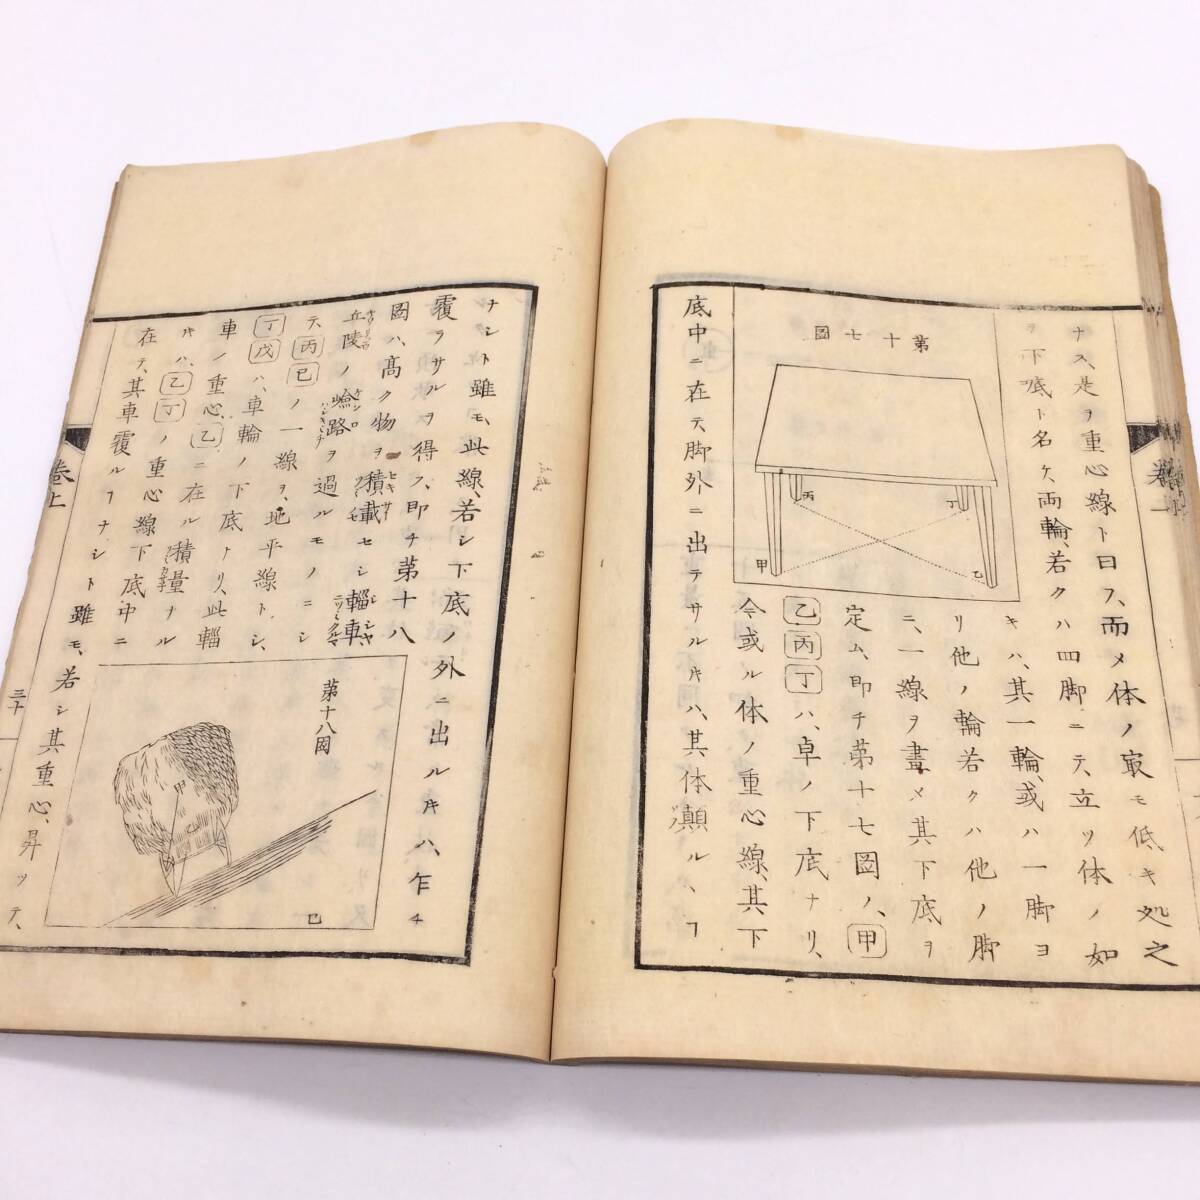 ナス、是ヲ重心線ト曰フ、而メ体ノ㝡モ低キ処之
ヲ下底ト名ケ、両輪、若クハ四脚ニテ、立ツ体ノ如
キハ、其一輪、或ハ一脚ヨ
リ他ノ輪若クハ他ノ脚
ニ、一線ヲ畫メ其下底ヲ
定ム、即チ苐十七図ノ、甲
乙丙丁ハ、卓ノ下底ナリ、
今或ル体ノ重心線、其下
底中ニ在テ、脚外ニ出テサルキハ、其体顛ルヽフ
苐十七図
丙
丁
甲
乙
ナシト雖モ、此線、若シ下底ノ外ニ出ルキハ、乍チ
覆ヲサルヲ得ス、即チ苐十八
図ハ、髙ク物ヲ積載セシ輜車
丘陵ノ嶮路ヲ過ルモノニシ
テ、丙巳ノ一線ヲ、地平線トシ、
丁戊ハ、車輪ノ下底トリ、此輜
車ノ重心、乙ニ在ル積量ナル
キハ、乙丁ノ重心線下底中ニ
在テ、其車覆ルフナシト雖モ、若シ其重心、昇ツテ、
苐十八図
甲
巳
卷上
三十